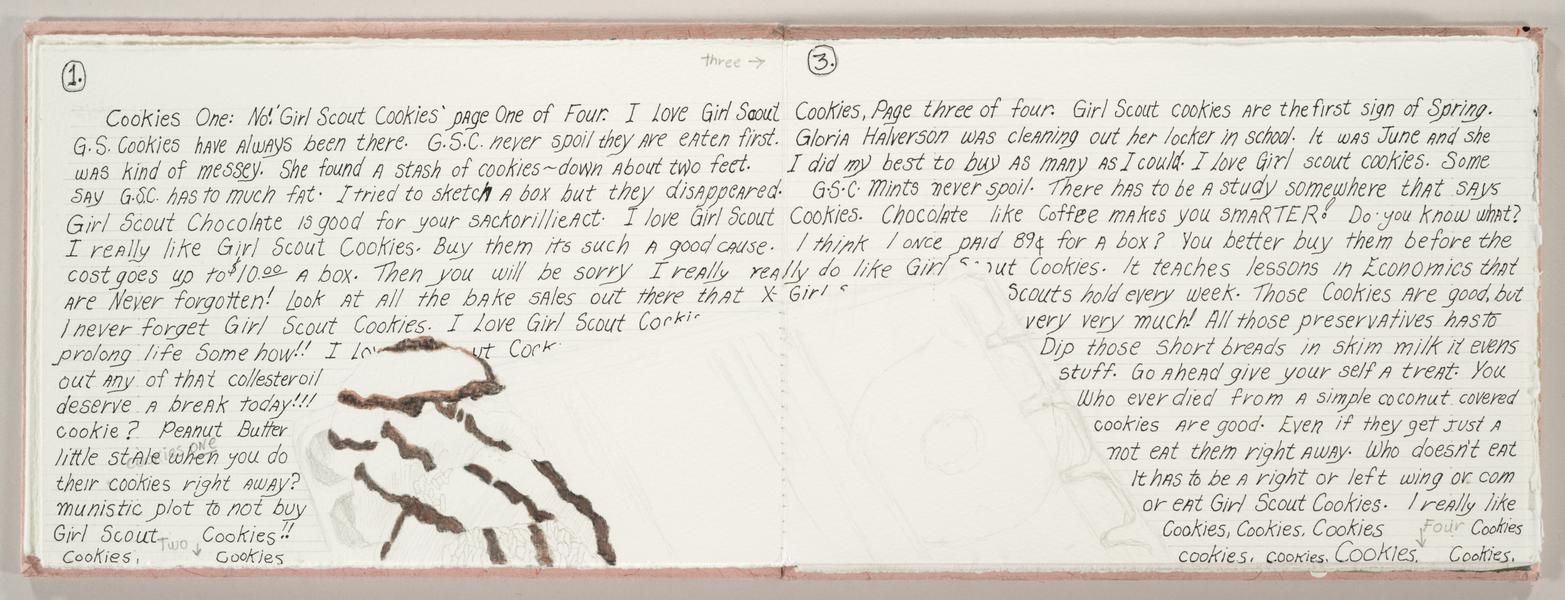 three →
1. 3.
Cookies One: No! Girl Scout Cookies' page One of Four. I love Girl Scout Cookies, Page three of four. Girl Scout cookies are the first sign of Spring.
G.S. Cookies have always been there. G.S.C. never spoil they are eaten first. Gloria Halverson was cleaning out her locker in school. It was June and she
was kind of messey. She found a stash of cookies~down about two feet. I did my best to buy as many as I could. I love Girl scout cookies. Some
say G.S.C. has to much fat. I tried to sketch a box but they disappeared. G.S.C. Mints never spoil. There has to be a study somewhere that says
Girl Scout Chocolate is good for your sackorillieact. I love Girl Scout Cookies. Chocolate like Coffee makes you smARTER! Do you know what?
I really like Girl Scout Cookies. Buy them its such a good cause. I think I once paid 89¢ for a box? You better buy them before the
cost goes up to $10.00 a box. Then you will be sorry I really really do like Girl Scout Cookies. It teaches lessons in Economics that
are Never forgotten! Look at all the bake sales out there that X- Girl S Scouts hold every week. Those Cookies are good, but
I never forget Girl Scout Cookies. I love Girl Scout Cookie very very much! All those preservatives has to
prolong life Some how!! I lo ut Cook Dip those short breads in skim milk it evens
out any of that collesteroil stuff. Go ahead give your self a treat. You
deserve a break today!!! Who ever died from a simple coconut covered
cookie? Peanut Butter cookies are good. Even if they get just a
cookies one
little stale when you do not eat them right away. Who doesn't eat
their cookies right away? It has to be a right or left wing or com
munistic plot to not buy or eat Girl Scout Cookies. I really like
Girl Scout Cookies!! Cookies, Cookies. Cookies Four Cookies
Two ↓
Cookies, Cookies cookies, Cookies. Cookies, Cookies.